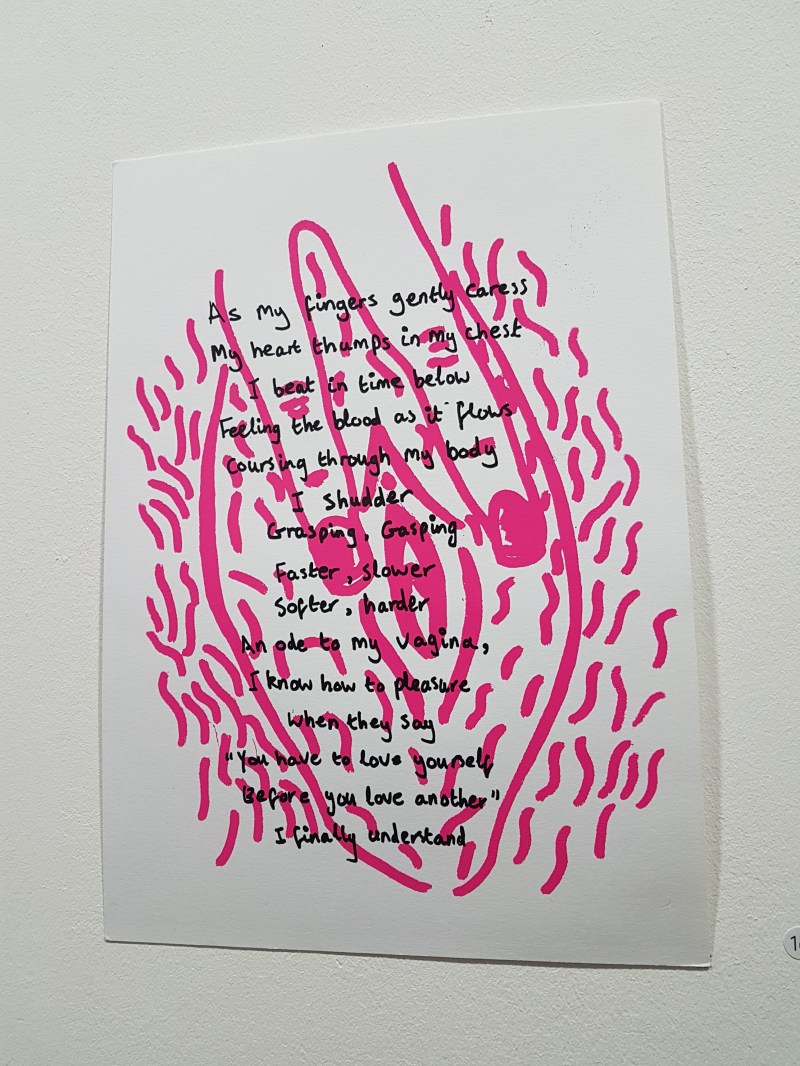 As my fingers gently caress
My heart thumps in my chest
I beat in time below
Feeling the blood as it flows
Coursing through my body
I shudder
Grasping, Gasping
Faster, slower
Softer, harder
An ode to my vagina,
I know how to pleasure
When they say
"You have to love yourself
Before you love another"
I finally understand